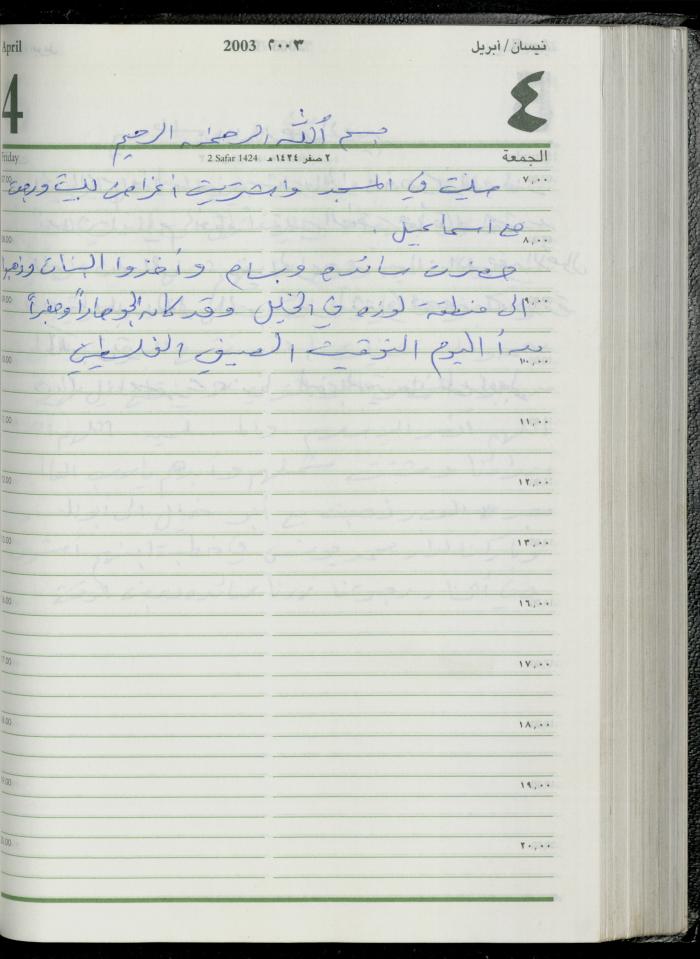 April 2003 ٢٠٠٣ نيسان / أبريل
4 ٤
بسم الله الرحمن الرحيم
Friday 2 Safar 1424 ٢ صفر ١٤٢٤ هـ الجمعة
٧,٠٠
صليت في المسجد واشتريت أغراض للبيت ورجعت
مع اسماعيل .
٨,٠٠
حضرت سائده وبسام وأخذوا البنات وذهبوا
الى منطقة لوزه في الخليل وقد كان الجو حاراً ومغبراً
٩,٠٠
بدأ اليوم التوقيت الصيفي الفلسطيني
١٠,٠٠
11.00 ١١,٠٠
12.00 ١٢,٠٠
13.00 ١٣,٠٠
16.00 ١٦,٠٠
17.00 ١٧,٠٠
18.00 ١٨,٠٠
19.00 ١٩,٠٠
20.00 ٢٠,٠٠